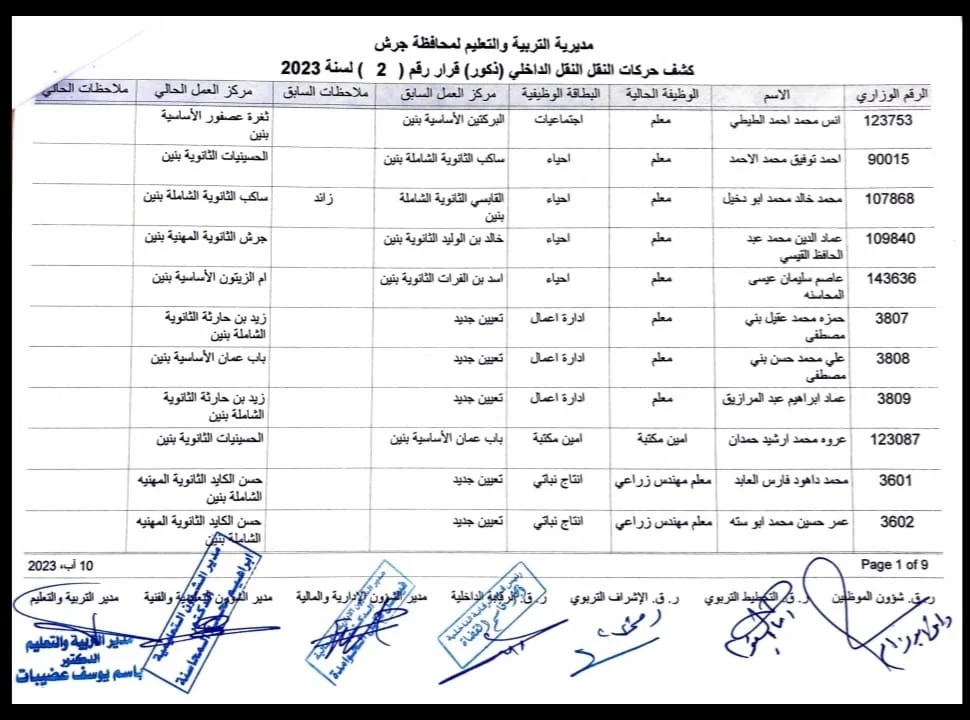 مديرية التربية والتعليم لمحافظة جرش
كشف حركات النقل النقل الداخلي (ذكور) قرار رقم ( 2 ) لسنة 2023
الرقم الوزاري الاسم الوظيفة الحالية البطاقة الوظيفية مركز العمل السابق ملاحظات السابق مركز العمل الحالي ملاحظات الحالي
123753 انس محمد احمد الطيطي معلم اجتماعيات البركتين الأساسية بنين ثغرة عصفور الأساسية
بنين
90015 احمد توفيق محمد الاحمد معلم احياء ساكب الثانوية الشاملة بنين الحسينيات الثانوية بنين
107868 محمد خالد محمد ابو دخيل معلم احياء القابسي الثانوية الشاملة زائد ساكب الثانوية الشاملة بنين
بنين
109840 عماد الدين محمد عبد معلم احياء خالد بن الوليد الثانوية بنين جرش الثانوية المهنية بنين
الحافظ القيسي
143636 عاصم سليمان عيسى معلم احياء اسد بن الفرات الثانوية بنين ام الزيتون الأساسية بنين
المحاسنه
3807 حمزه محمد عقيل بني معلم ادارة اعمال تعيين جديد زيد بن حارثة الثانوية
مصطفى الشاملة بنين
3808 علي محمد حسن بني معلم ادارة اعمال تعيين جديد باب عمان الأساسية بنين
مصطفى
3809 عماد ابراهيم عبد المرازيق معلم ادارة اعمال تعيين جديد زيد بن حارثة الثانوية
الشاملة بنين
123087 عروه محمد ارشيد حمدان امين مكتبة امين مكتبة باب عمان الأساسية بنين الحسينيات الثانوية بنين
3601 محمد داهود فارس العابد معلم مهندس زراعي انتاج نباتي تعيين جديد حسن الكايد الثانوية المهنيه
الشاملة بنين
3602 عمر حسين محمد ابو سته معلم مهندس زراعي انتاج نباتي تعيين جديد حسن الكايد الثانوية المهنيه
الشاملة بنين
Page 1 of 9 10 آب، 2023
ر. ق. شؤون الموظفين ر. ق. التخطيط التربوي ر. ق. الإشراف التربوي ر. ق. الرقابة الداخلية مدير الشؤون الإدارية والمالية مدير الشؤون التعليمية والفنية مدير التربية والتعليم
مدير الشؤون التعليمية
مدير التربية والتعليم
الدكتور
باسم يوسف عضيبات